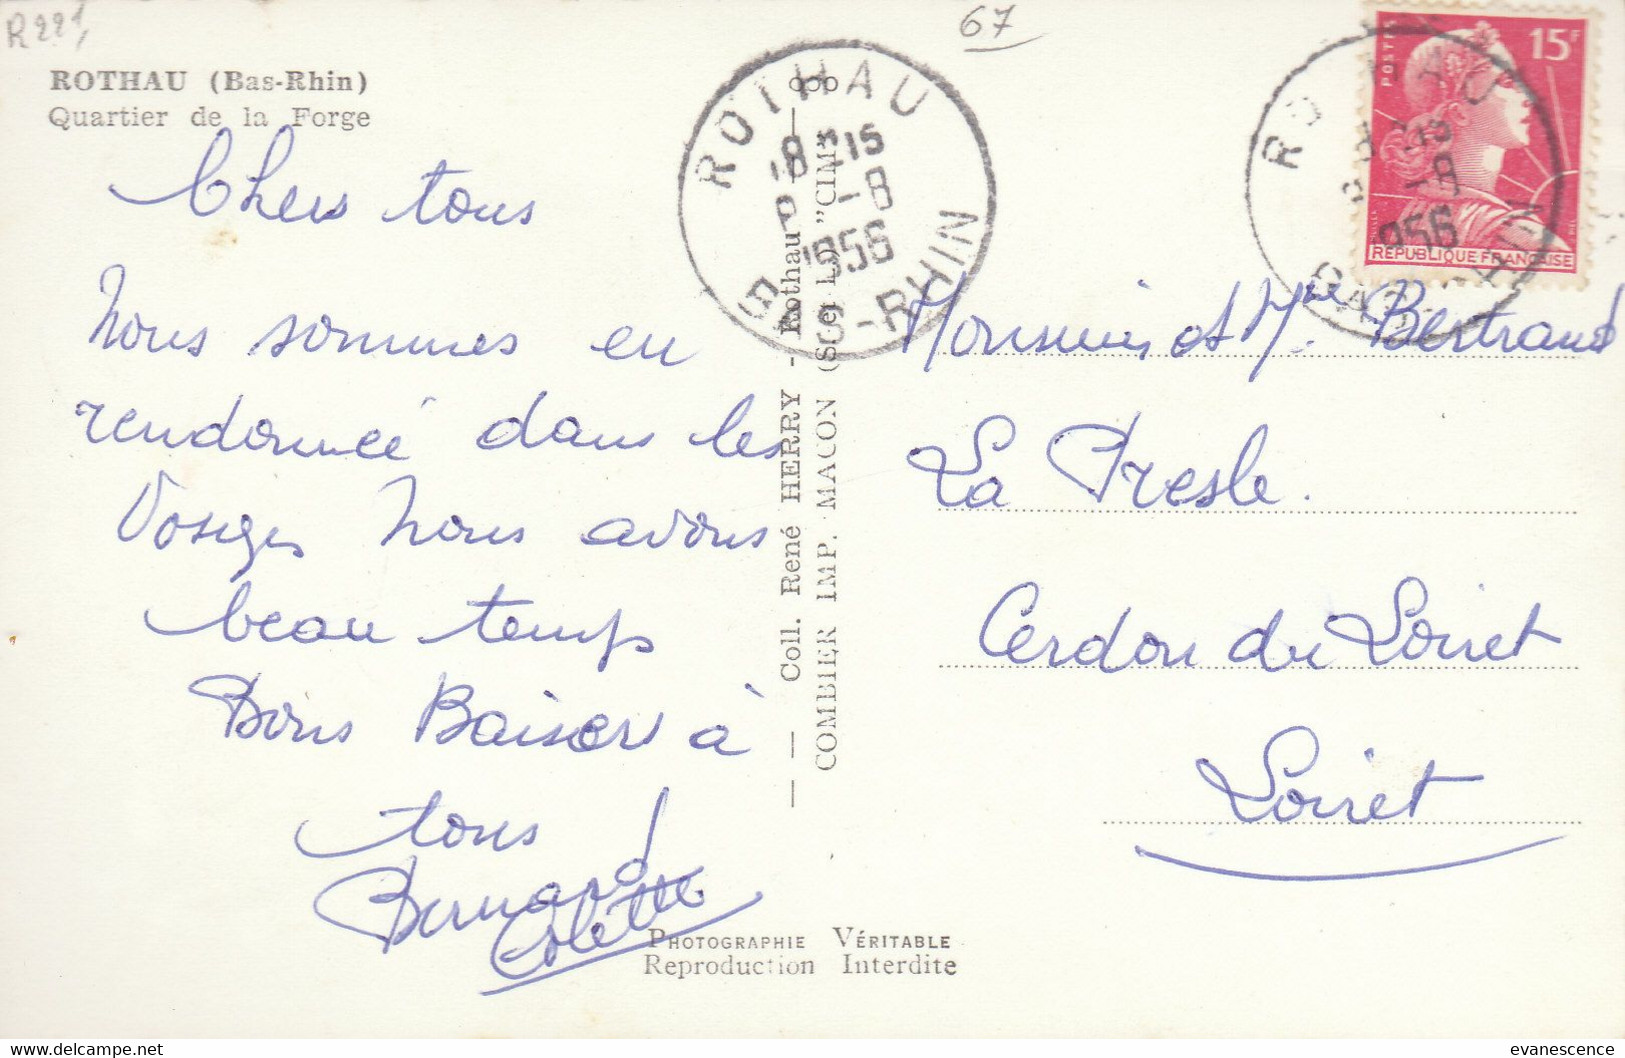 R221
67
ROTHAU (Bas-Rhin)
Quartier de la Forge
Chers tous
Nous sommes en
rendonnée dans les
Vosges Nous avons
beau temps
Bons Baisers à
tous
Bernard
Colette
ROTHAU
18H15
8 -8
1956
BAS-RHIN
Coll. René HERRY - Rothau
COMBIER IMP. MACON (S. et L.) "CIM"
POSTES
15F
REPUBLIQUE FRANÇAISE
ROTHAU
18H15
8 -8
1956
BAS-RHIN
Monsieur et Mme Bertrand
La Presle.
Cerdon du Loiret
Loiret
PHOTOGRAPHIE VÉRITABLE
Reproduction Interdite
evanescence